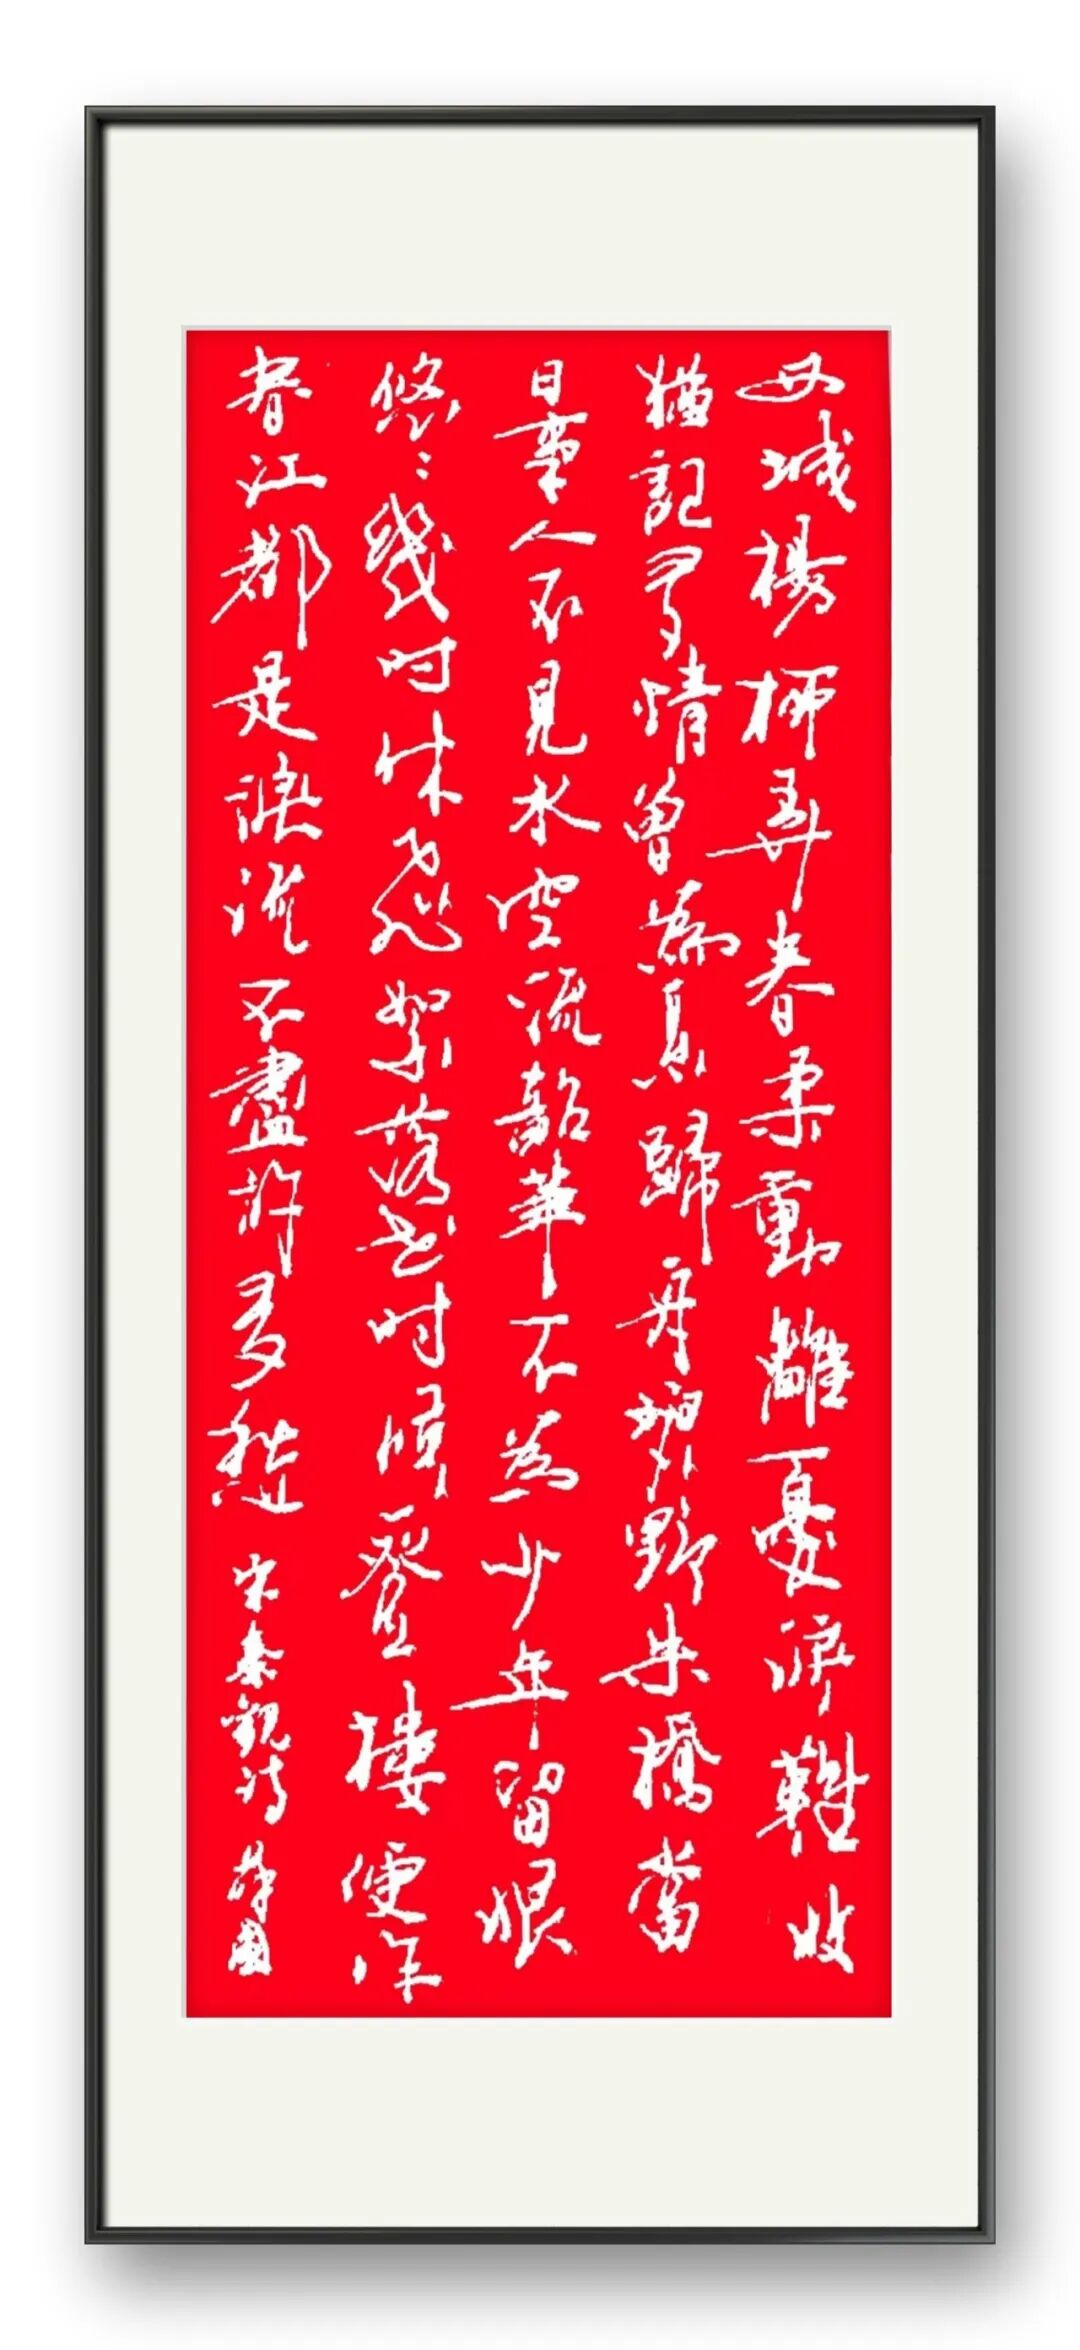 西城楊柳弄春柔動離憂淚難收
猶記多情曾為系歸舟碧野朱橋當
日事人不見水空流韶華不為少年留恨
悠〻幾時休飛絮落花時候一登樓便作
春江都是淚流不盡許多愁 宋秦觀詩